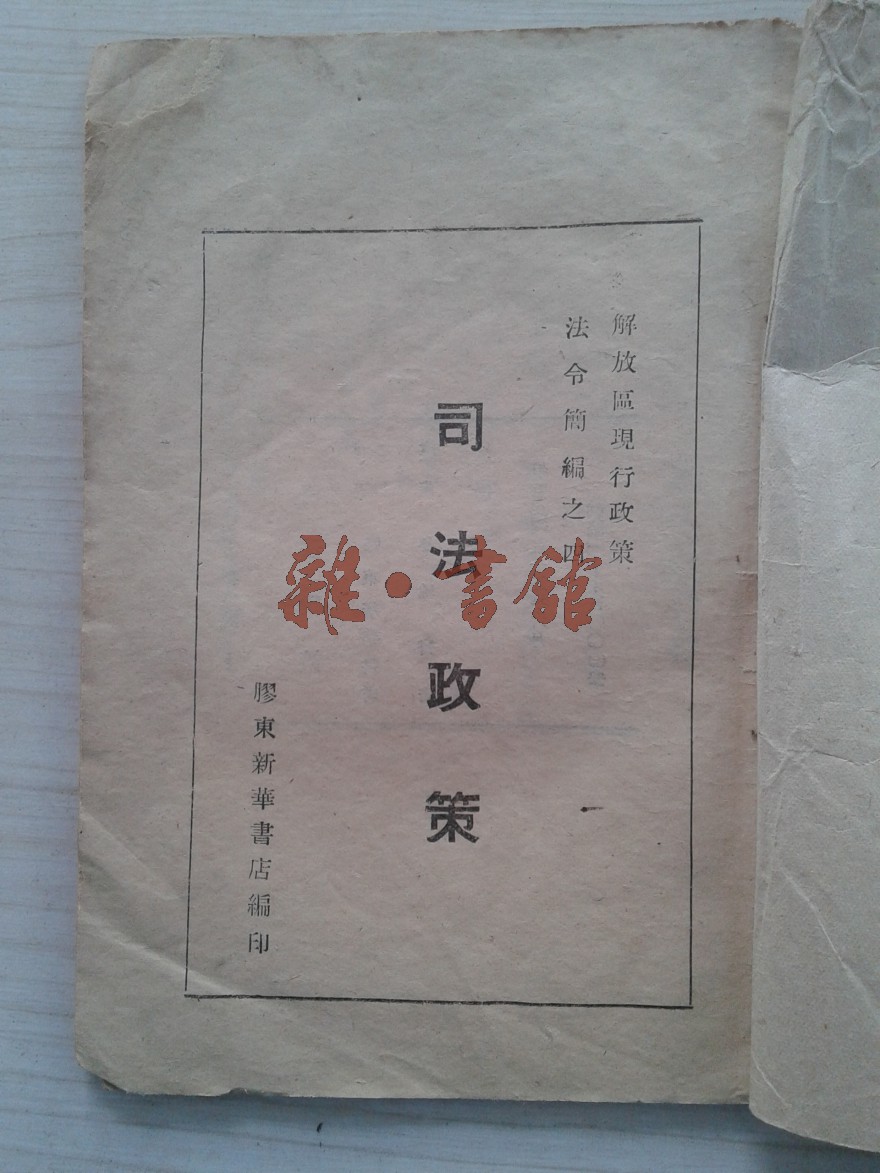 解放區現行政策
法令簡編之四
司法政策
膠東新華書店編印
雜·書館